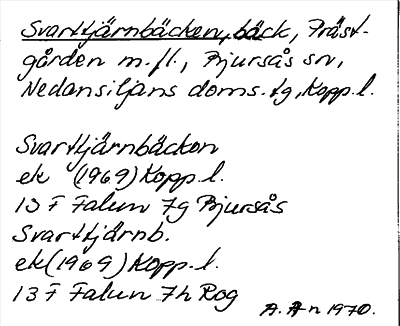 Svarttjärnbäcken, bäck, Präst-
gården m.fl., Bjursås sn,
Nedansiljans doms.tg, Kopp.l.
Svarttjärnbäcken
ek (1969) Kopp.l.
13 F Falun 7g Bjursås
Svarttjärnb.
ek (1969) Kopp.l.
13 F Falun 7h Rog
A. A-n 1970.